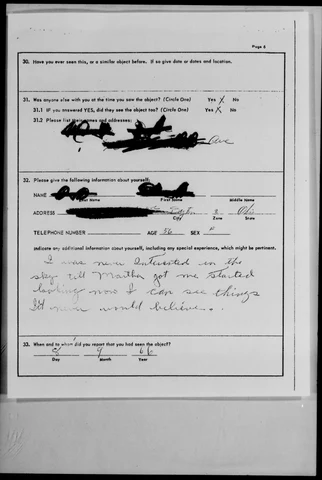 Page 6
30. Have you ever seen this, or a similar object before. If so give date or dates and location.
31. Was anyone else with you at the time you saw the object? (Circle One) Yes No
31.1 IF you answered YES, did they see the object too? (Circle One) Yes No
31.2 Please list their names and addresses:
Ave
32. Please give the following information about yourself:
NAME
Last Name First Name Middle Name
ADDRESS Dayton 8 Ohio
Street City Zone State
TELEPHONE NUMBER AGE 56 SEX
Indicate any additional information about yourself, including any special experience, which might be pertinent.
I was never Intersted in the
sky till Martha got me started
looking now I can see things
I'd never would believe.
33. When and to whom did you report that you had seen the object?
9 66
Day Month Year